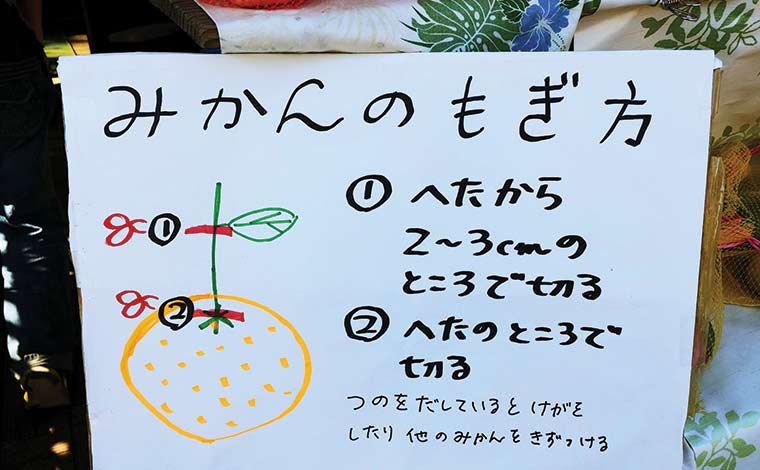 みかんのもぎ方
①
②
① へたから
2〜3cmの
ところで切る
② へたのところで
切る
つのをだしていると けがを
したり 他のみかんをきずつける